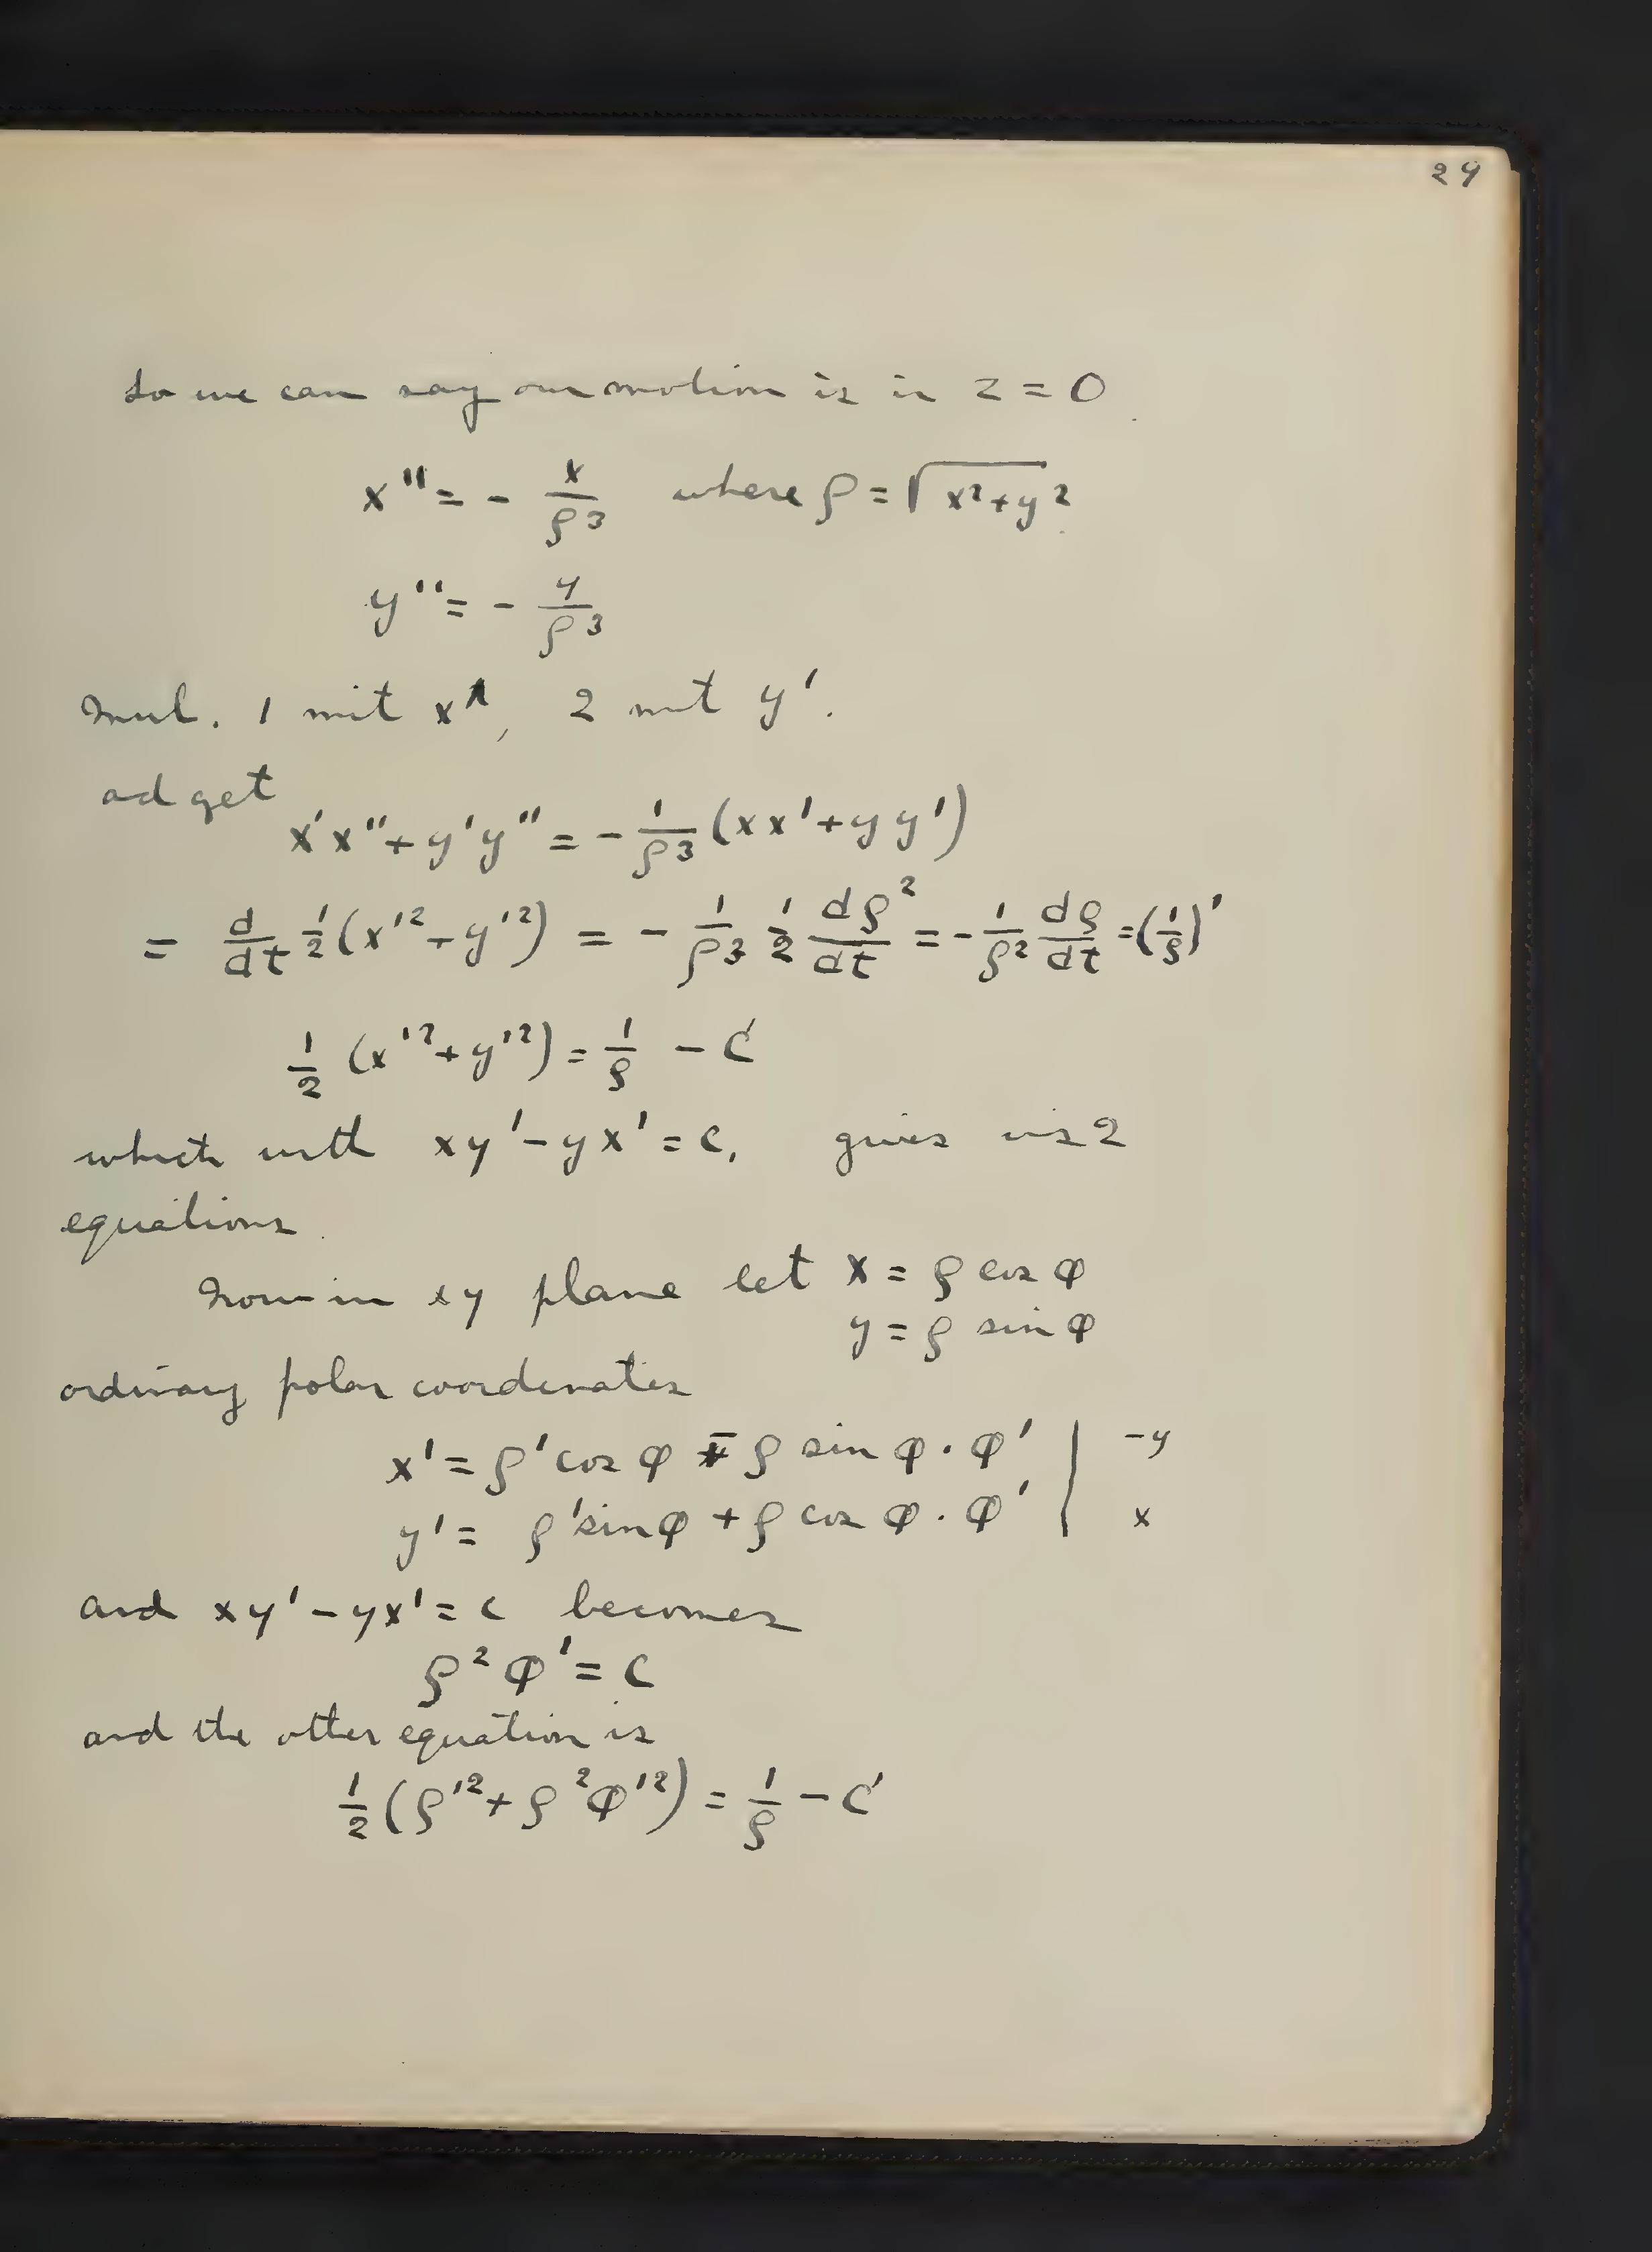 29
So we can say our motion is in z = 0
x'' = - x/ρ³ where ρ = √(x²+y²)
y'' = - y/ρ³
Mul. 1 mit x', 2 mit y'.
ad get
x'x'' + y'y'' = - 1/ρ³ (xx' + yy')
= d/dt ½(x'² + y'²) = - 1/ρ³ ½ dρ²/dt = - 1/ρ² dρ/dt = (1/ρ)'
½ (x'² + y'²) = 1/ρ - C'
which with xy' - yx' = c, gives us 2
equations.
Now in xy plane let x = ρ cos φ
y = ρ sin φ
ordinary polar coordinates
x' = ρ' cos φ - ρ sin φ · φ' | -y
y' = ρ' sin φ + ρ cos φ · φ' | x
and xy' - yx' = c becomes
ρ² φ' = c
and the other equation is
½ (ρ'² + ρ² φ'²) = 1/ρ - C'